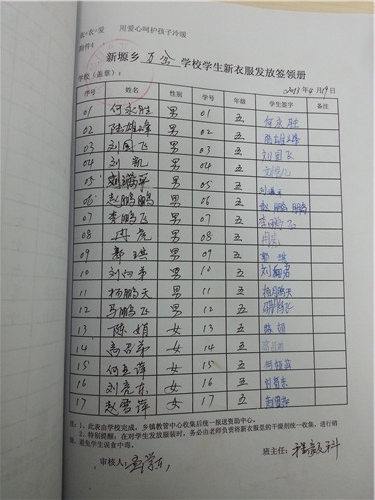 衣+衣=爱 用爱心呵护孩子冷暖
附件4
新塬乡万崖学校学生新衣服发放签领册
学校（盖章）： 2013年4月19日
序号 姓名 性别 学号 年级 学生签字 备注
01 何永胜 男 01 五 何永胜
02 陆雄峰 男 02 五 陆雄峰
03 刘国飞 男 03 五 刘国飞
04 刘凯 男 04 五
05 男 05 五
06 赵鹏鹏 男 06 五 赵鹏鹏
07 李鹏飞 男 07 五 李鹏飞
08 冉虎 男 08 五 冉虎
09 郭琪 男 09 五 郭琪
10 男 10 五
11 杨鹏天 男 11 五 杨鹏天
12 马鹏飞 男 12 五 马鹏飞
13 陈娟 女 13 五 陈娟
14 高召弟 女 14 五
15 何亚萍 女 15 五 何亚萍
16 刘亮东 女 16 五
17 赵雪萍 女 17 五 赵雪萍
注：1、此表由学校完成，乡镇教管中心收集后统一报送资助中心。
2、特别提醒，在对学生发放服装时，务必由老师负责将新衣服里的干燥剂统一收集，进行销
毁，避免学生误食中毒。
审核人： 班主任：